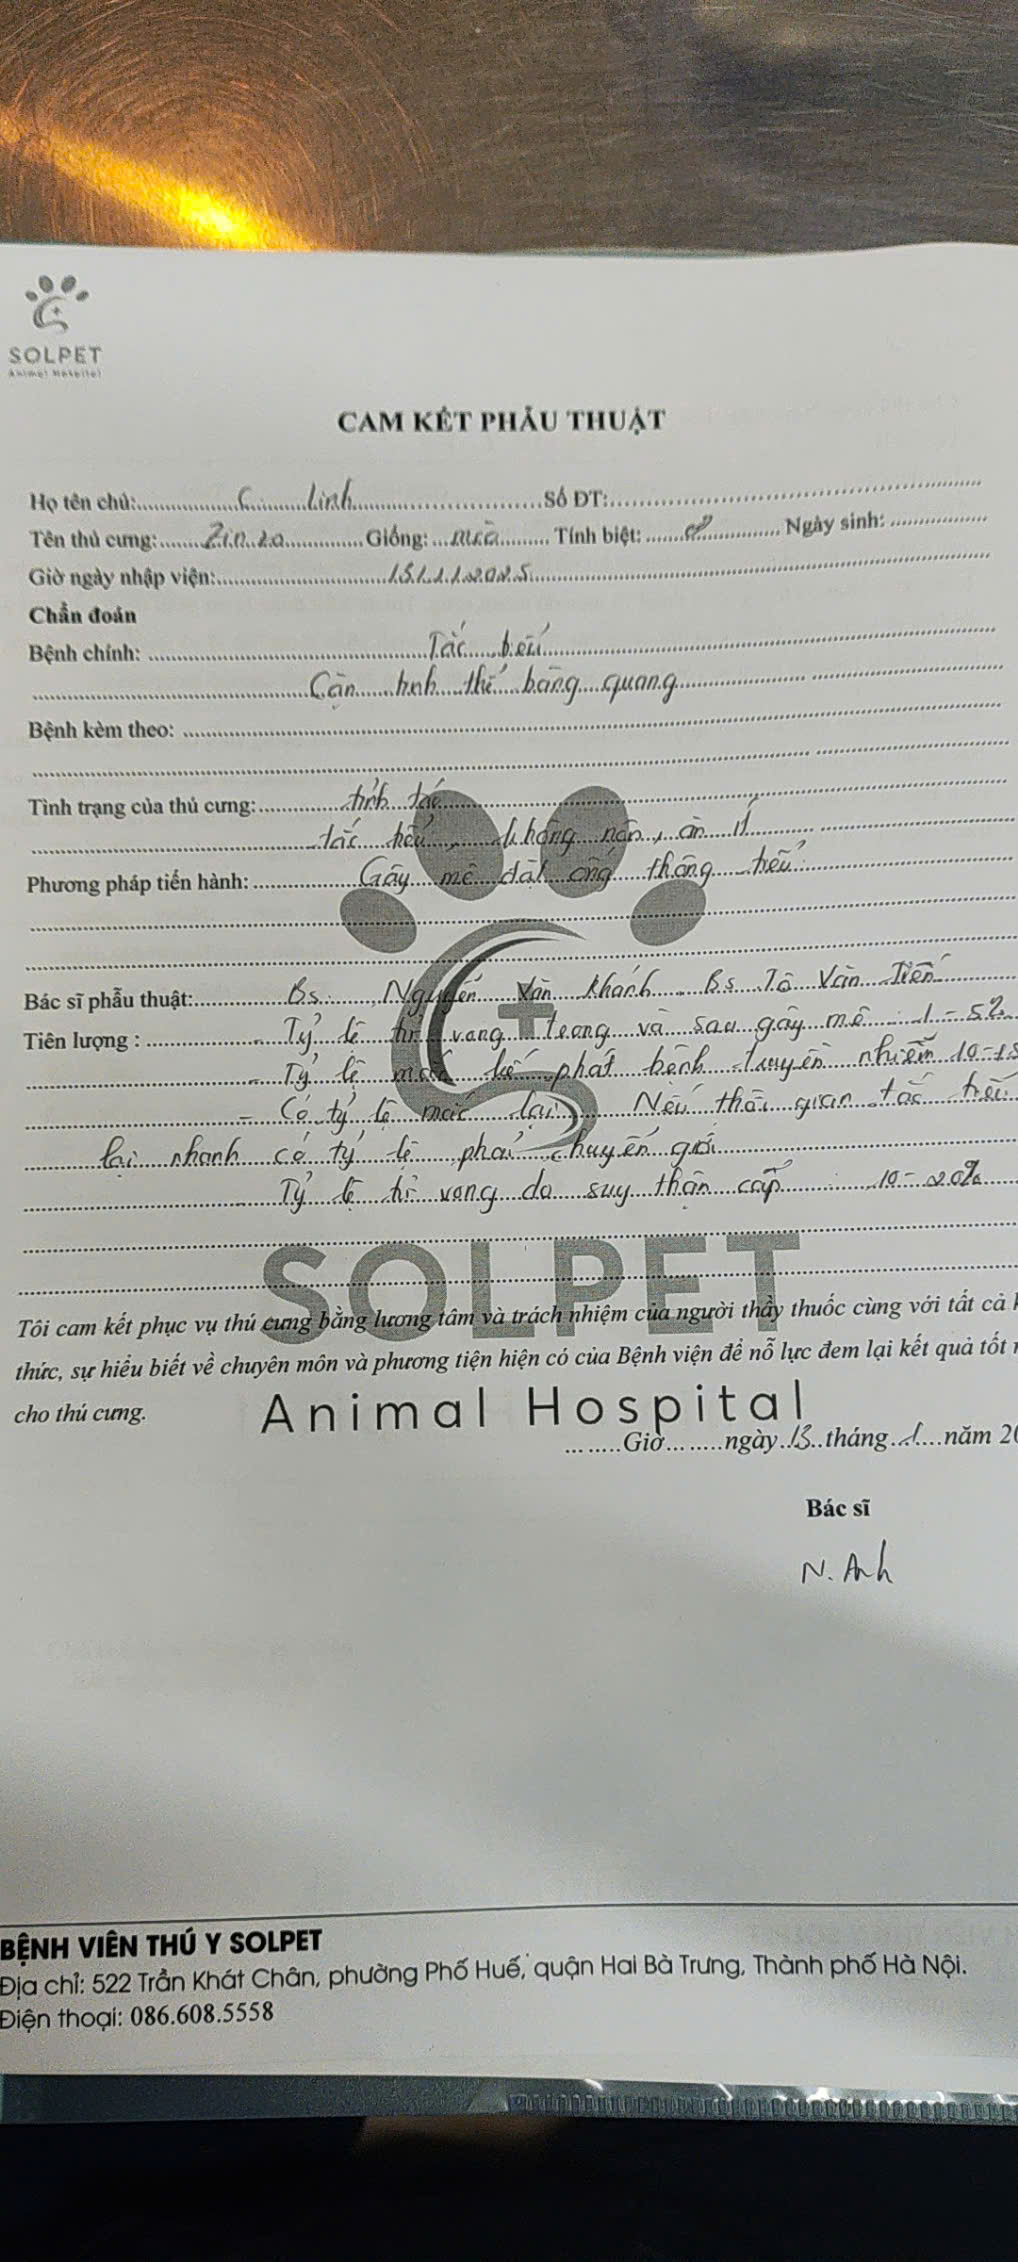 SOLPET
Animal Hospital
CAM KẾT PHẪU THUẬT
Họ tên chủ: C. Linh Số ĐT:
Tên thú cưng: Zin za Giống: mèo Tính biệt: Ngày sinh:
Giờ ngày nhập viện: 15/1/2025
Chẩn đoán
Bệnh chính: Tắc tiểu
Cặn tinh thể bàng quang
Bệnh kèm theo:
Tình trạng của thú cưng: tỉnh táo
tắc tiểu, không nôn, ăn ít
Phương pháp tiến hành: Gây mê đặt ống thông tiểu
Bác sĩ phẫu thuật: Bs. Nguyễn Văn Khánh Bs Tô Văn Tiến
Tiên lượng : - Tỷ lệ tử vong trong và sau gây mê : 1 - 5%
- Tỷ lệ mắc kế phát bệnh truyền nhiễm 10-15
- Có tỷ lệ mắc lại. Nếu thời gian tắc tiểu
lại nhanh có tỷ lệ phải chuyển giới
- Tỷ lệ tử vong do suy thận cấp : 10 - 20%
SOLPET
Tôi cam kết phục vụ thú cưng bằng lương tâm và trách nhiệm của người thầy thuốc cùng với tất cả
thức, sự hiểu biết về chuyên môn và phương tiện hiện có của Bệnh viện để nỗ lực đem lại kết quả tốt
cho thú cưng.
Animal Hospital
Giờ ngày 13 tháng 1 năm 20
Bác sĩ
N. Anh
BỆNH VIÊN THÚ Y SOLPET
Địa chỉ: 522 Trần Khát Chân, phường Phố Huế, quận Hai Bà Trưng, Thành phố Hà Nội.
Điện thoại: 086.608.5558